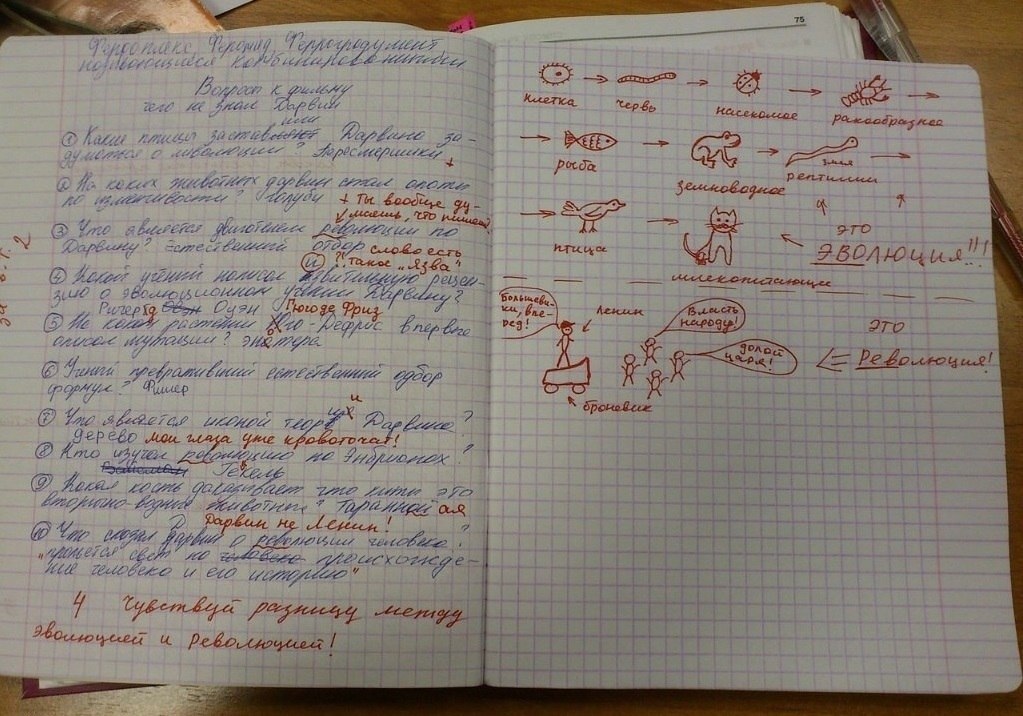 75
Вопросы к фильму
чего не знал Дарвин
① Какие птицы заставили Дарвина за-
думаться о революции?
+
② На каких животных дарвин стал опыты
по изменчивости? голуби
+ ты вообще ду-
маешь, что пишешь?
③ Что является двигателем революции по
Дарвину? Естественный отбор
слово есть
такое „Язва"
④ Какой учёный написал
о эволюционном учении Дарвину?
Ричард Оуэн
Гюго де Фриз
⑤ На каком растении Юго-Дефриз впервые
описал мутации? энотера
⑥ Учёный превративший естественный отбор
формул? Фишер
⑦ Что является иконой теории Дарвина?
дерево мои глаза уже кровоточат!
⑧ Кто изучал революцию по Энбрионах?
Геккель
⑨ Какая кость доказывает что киты это
вторично-водные животные? Таранная
Дарвин не Ленин!
⑩ Что сказал Дарвин о революции человека?
„прольётся свет на происхожде-
ние человека и его историю"
4 Чувствуй разницу между
эволюцией и Революцией!
клетка червь насекомое ракообразное
рыба земноводное змея рептилии
птица млекопитающие
это
ЭВОЛЮЦИЯ!!!
Большеви-
ки, впе-
рёд!
ленин
Власть
народу!
долой
царя!
броневик
это
Революция!